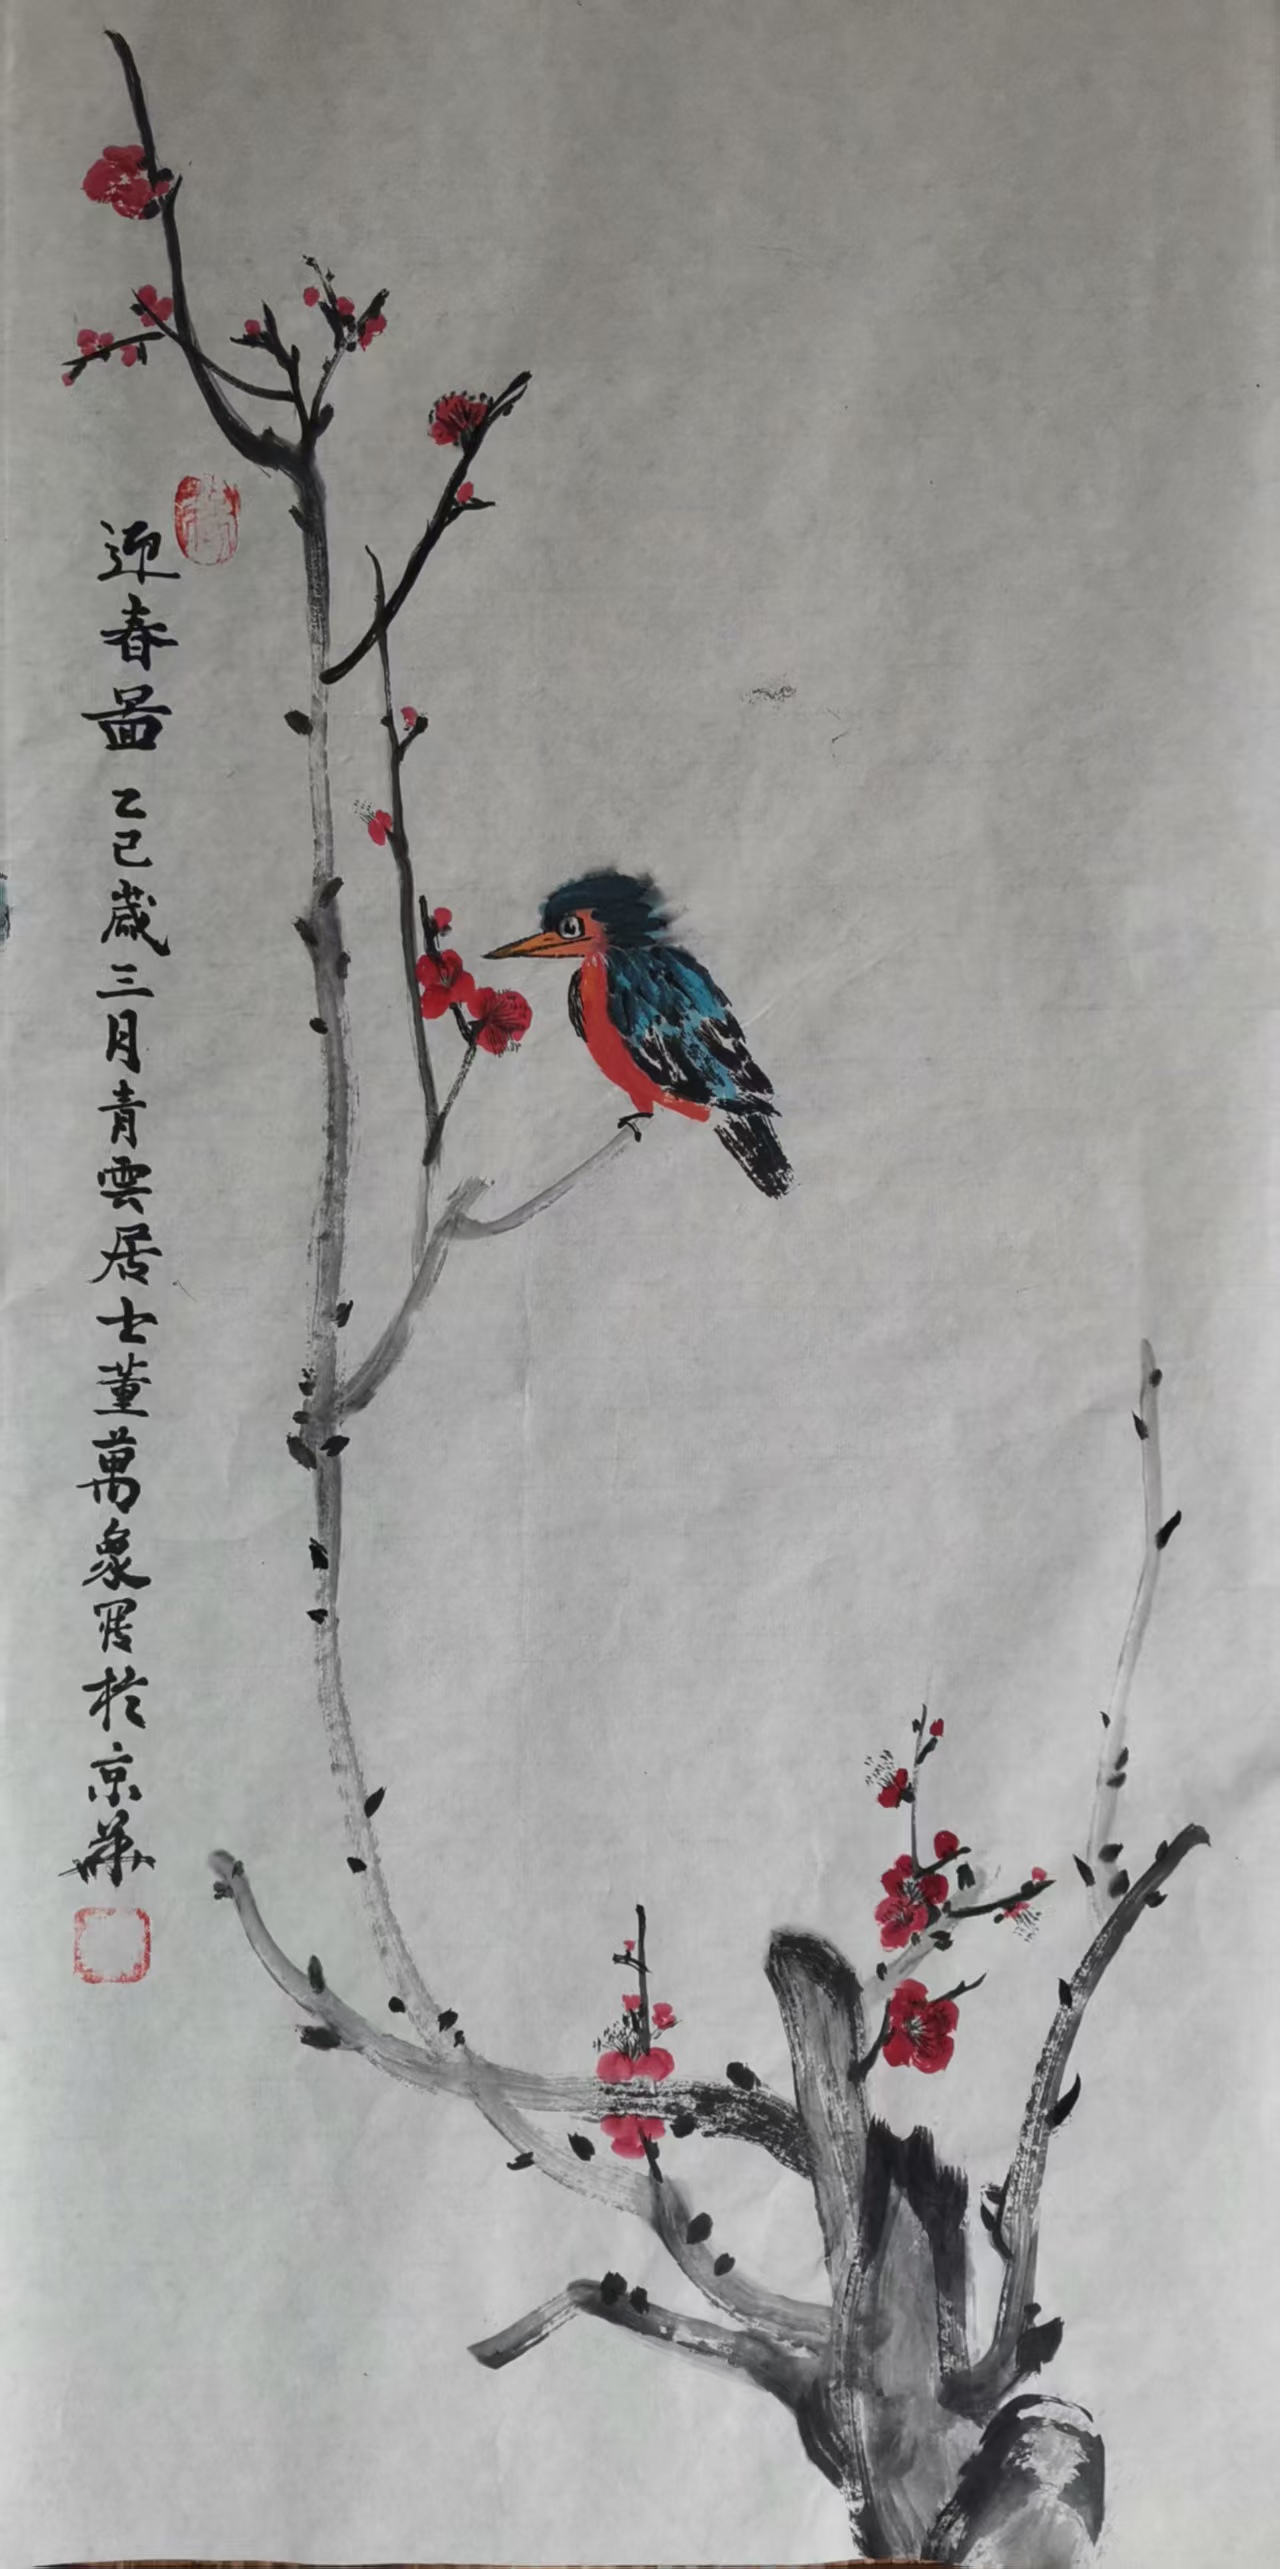 迎春圖 乙巳歲三月青雲居士董萬泉寫於京華